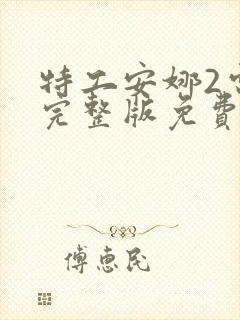 特工安娜2
完整版免費
傅惠民